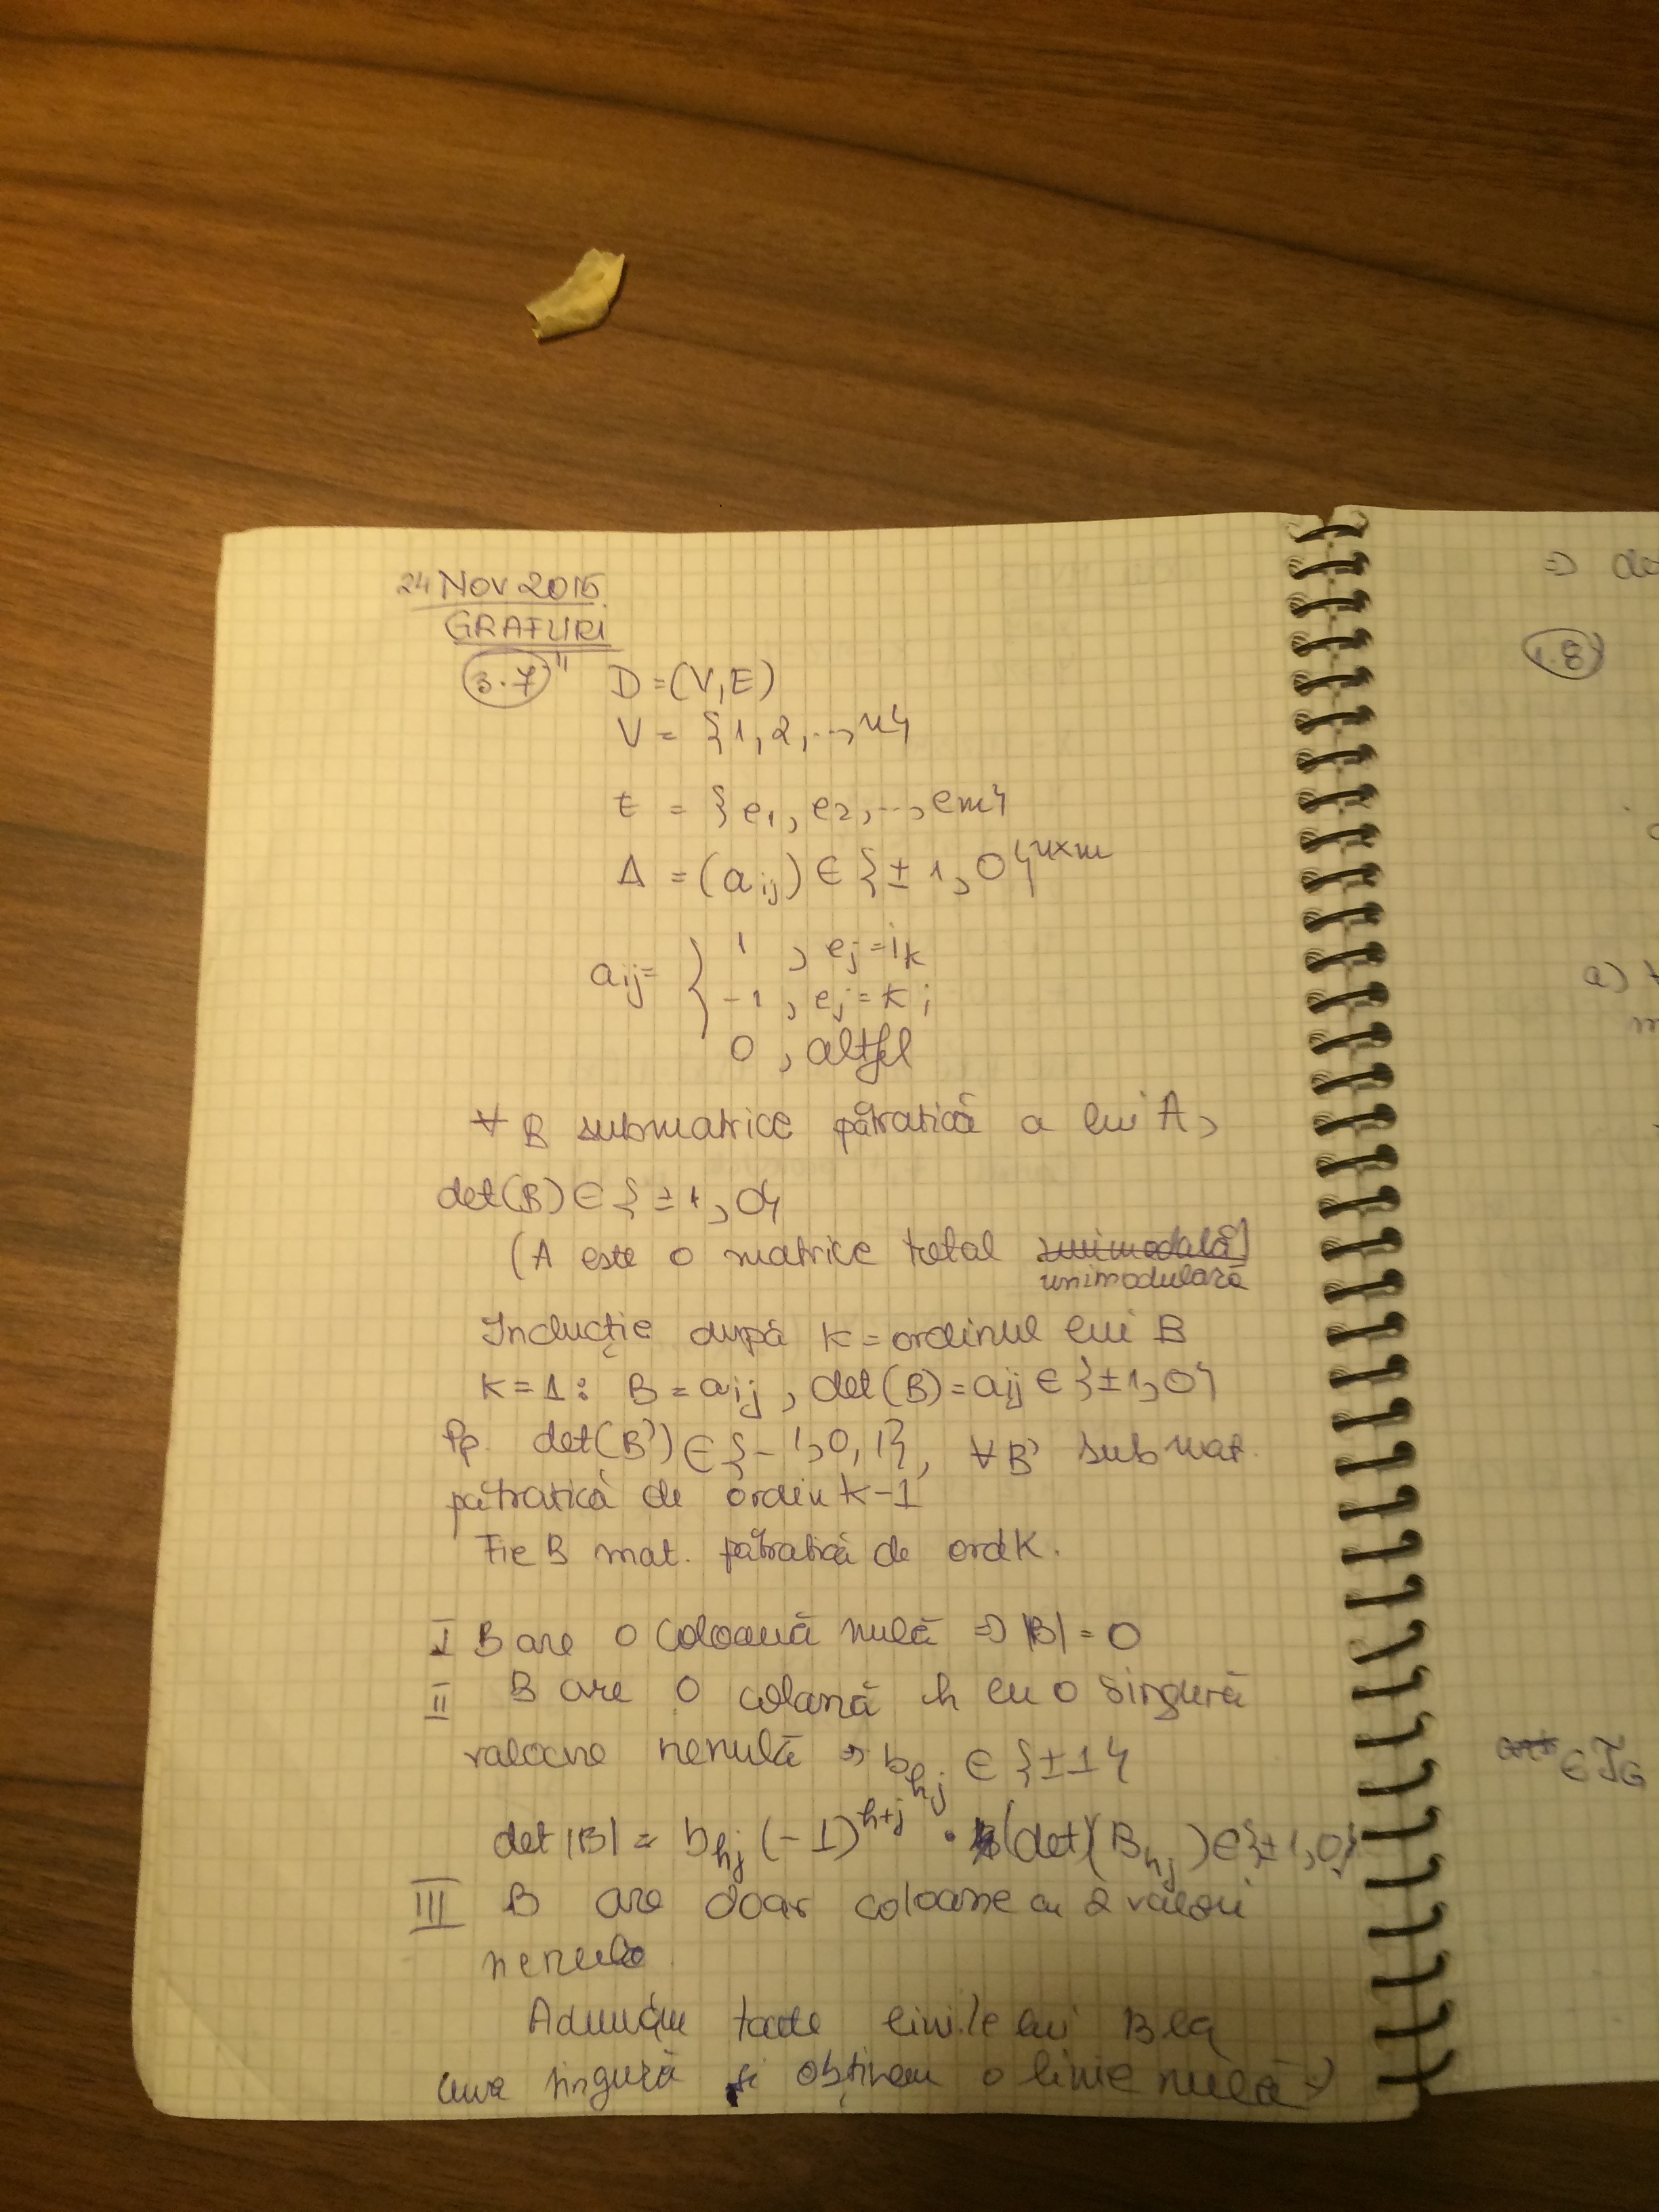 24 NOV 2015
GRAFURI
3.7"
D=(V,E)
V = {1,2,..,n}
E = {e1, e2,..., em}
A = (aij) ∈ {±1, 0}^n×m
aij= { 1 , ej = ik
-1 , ej = ki
0 , altfel
∀ B submatrice pătratică a lui A,
det(B) ∈ {±1, 0}
(A este o matrice total unimodală)
unimodulară
Inducție după k = ordinul lui B
k=1: B = aij, det(B) = aij ∈ {±1, 0}
Pp. det(B') ∈ {-1, 0, 1}, ∀ B' submat.
pătratică de ordin k-1
Fie B mat. pătratică de ord k.
I B are o coloană nulă ⇒ |B| = 0
II B are o coloană h cu o singură
valoare nenulă ⇒ bhj ∈ {±1}
det |B| = bhj (-1)^h+j · (det)(Bhj) ∈ {±1, 0}
III B are doar coloane cu 2 valori
nenule.
Adunăm toate liniile lui B la
una singură și obținem o linie nulă ⇒
⇒
1.8
a)
∈ TG